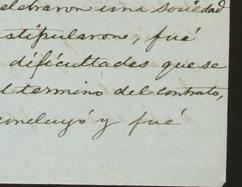 celebraron una sociedad
estipularon, fué
dificultades que se
el termino del contrato,
concluyó y fué